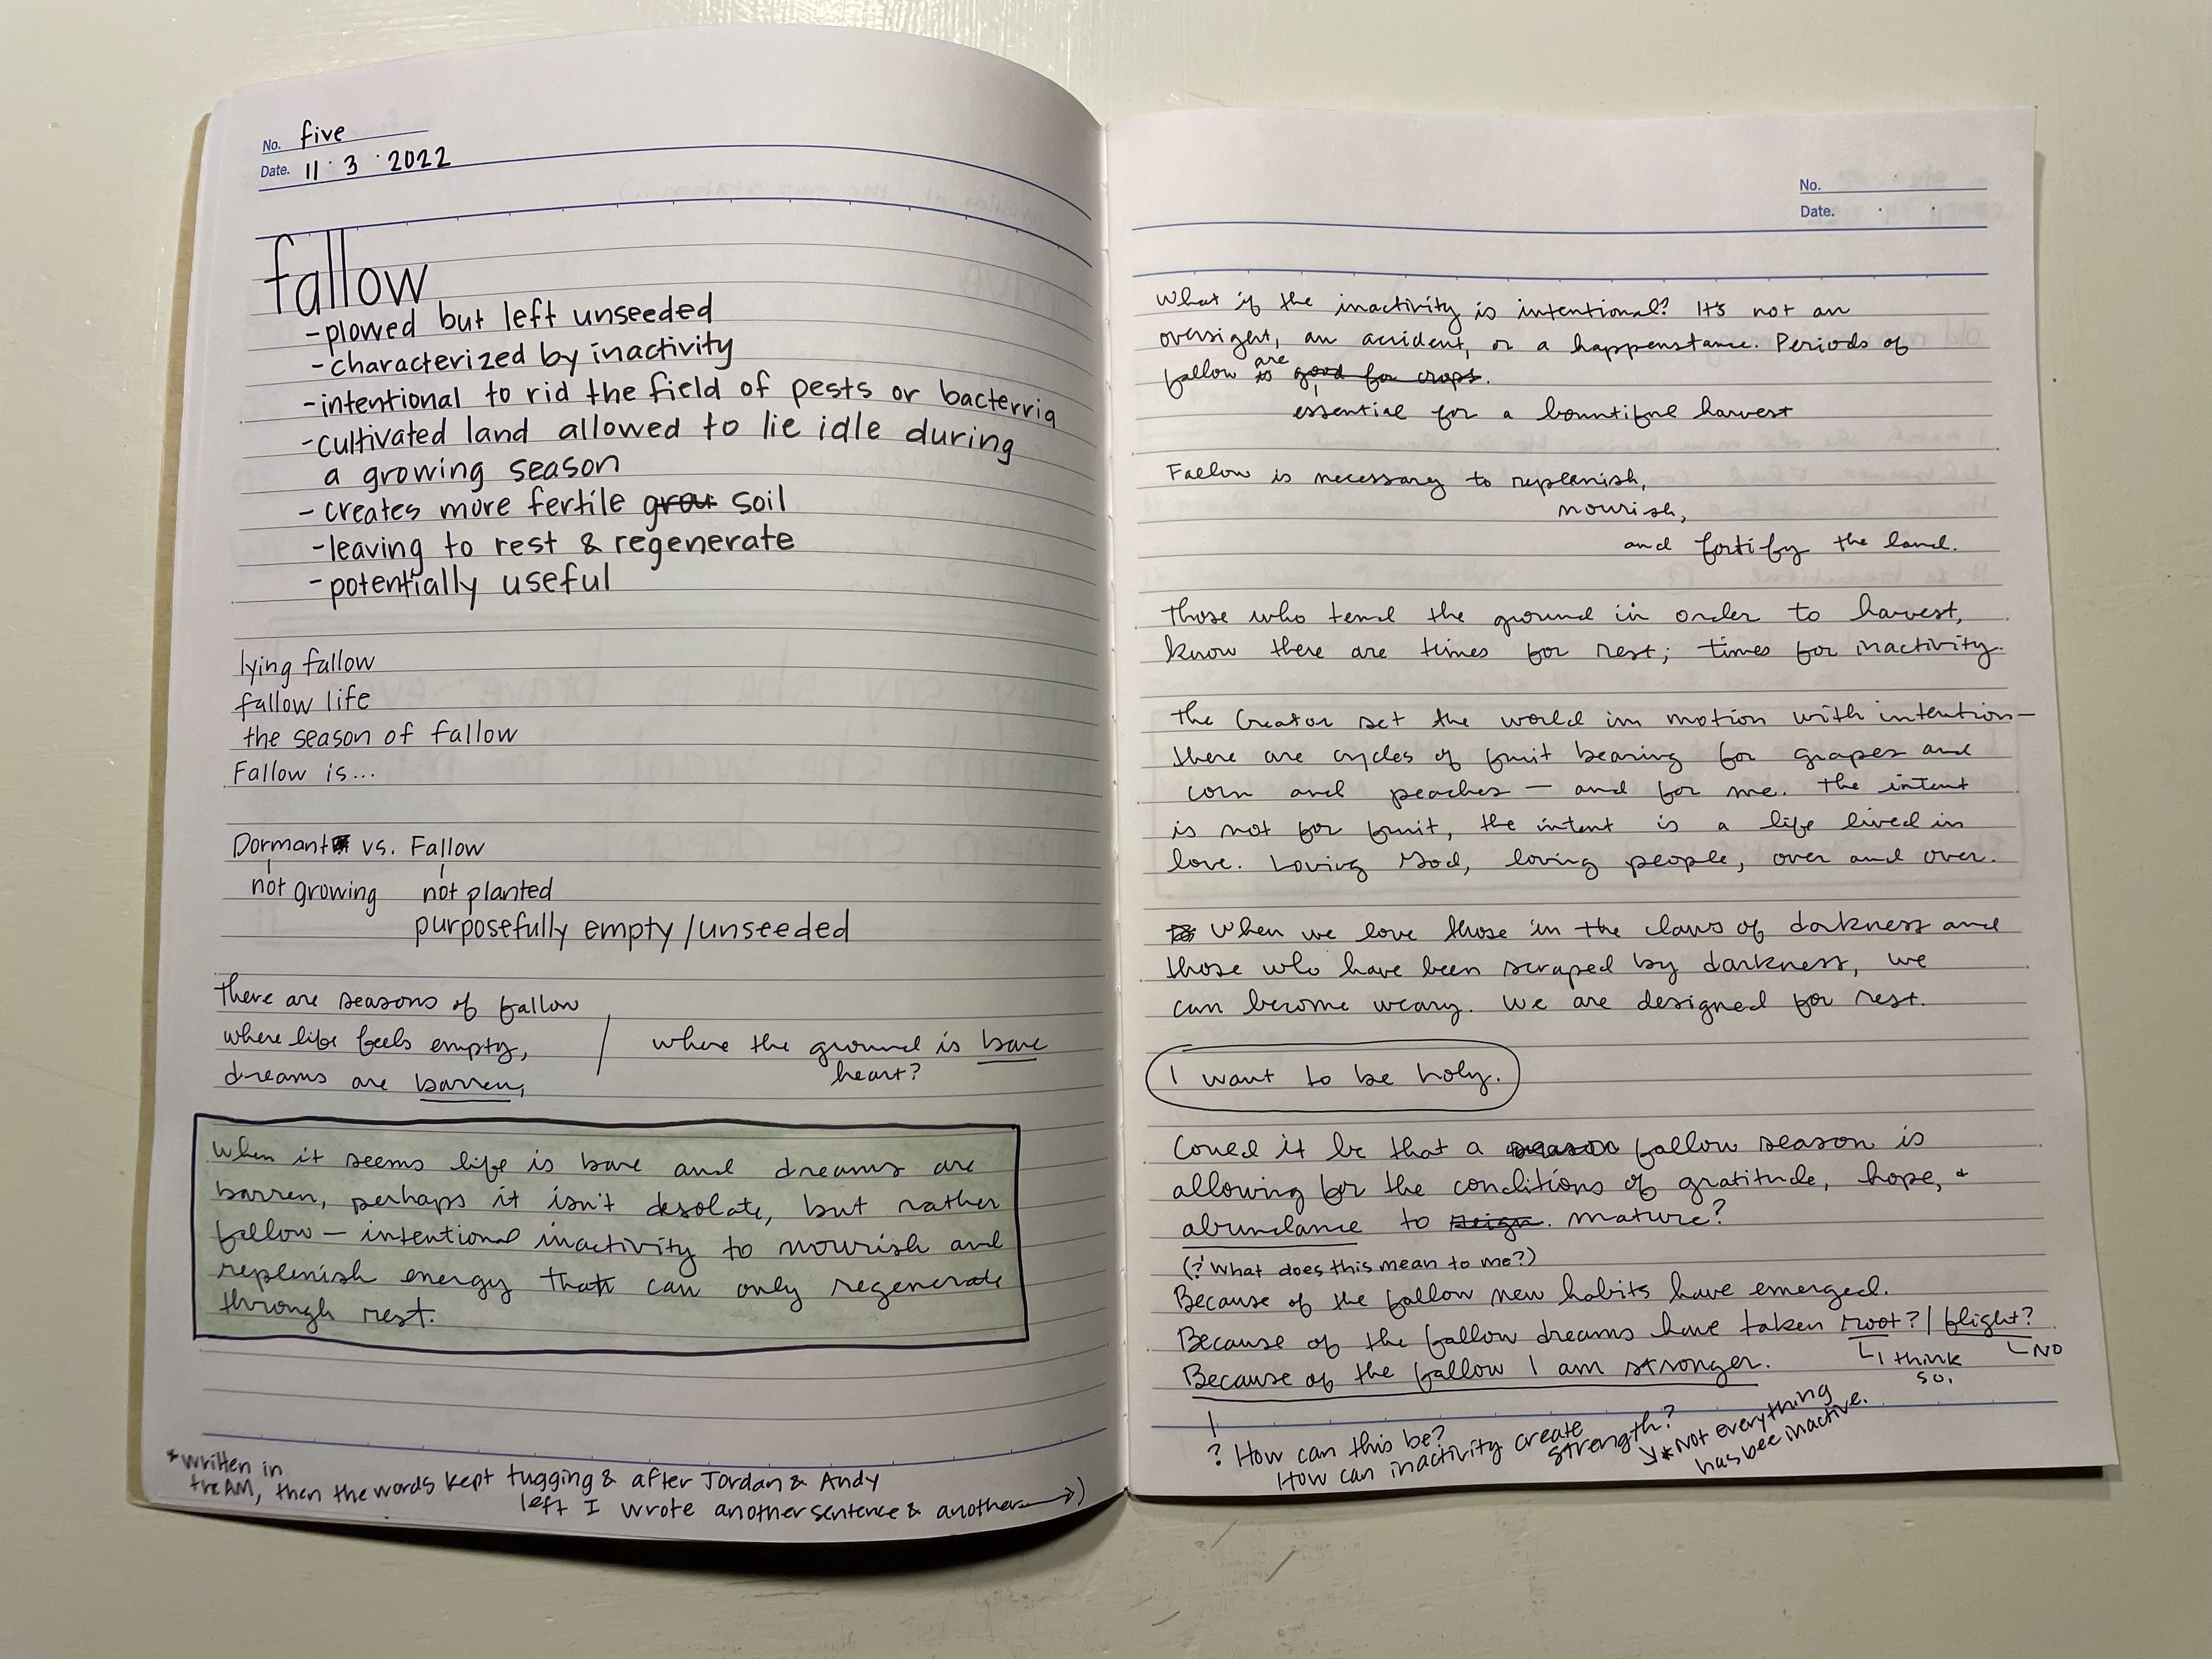 No. five
Date. 11 · 3 · 2022
fallow
-plowed but left unseeded
-characterized by inactivity
-intentional to rid the field of pests or bacterria
-cultivated land allowed to lie idle during
a growing season
- creates more fertile grou soil
-leaving to rest & regenerate
-potentially useful
lying fallow
fallow life
the season of fallow
Fallow is...
Dormant vs. Fallow
not growing not planted
purposefully empty/unseeded
there are seasons of fallow
where life feels empty, / where the ground is bare
dreams are barren, heart?
When it seems life is bare and dreams are
barren, perhaps it isn't desolate, but rather
fallow — intentional inactivity to nourish and
replenish energy that can only regenerate
through rest.
*written in
the AM, then the words kept tugging & after Jordan & Andy
left I wrote another sentence & another→)
No.
Date. · ·
What if the inactivity is intentional? It's not an
oversight, an accident, or a happenstance. Periods of
are
fallow is good for crops.
essential for a bountiful harvest
Fallow is necessary to replenish,
nourish,
and fortify the land.
Those who tend the ground in order to harvest,
know there are times for rest; times for inactivity.
The Creator set the world in motion with intention—
there are cycles of fruit bearing for grapes and
corn and peaches — and for me. The intent
is not for fruit, the intent is a life lived in
love. Loving God, loving people, over and over.
When we love those in the claws of darkness and
those who have been scraped by darkness, we
can become weary. We are designed for rest.
I want to be holy.
Could it be that a season fallow season is
allowing for the conditions of gratitude, hope, &
abundance to reign. mature?
(? What does this mean to me?)
Because of the fallow new habits have emerged.
Because of the fallow dreams have taken root?/flight?
I think so. NO
Because of the fallow I am stronger.
? How can this be?
How can inactivity create strength?
* Not everything
has bee inactive.